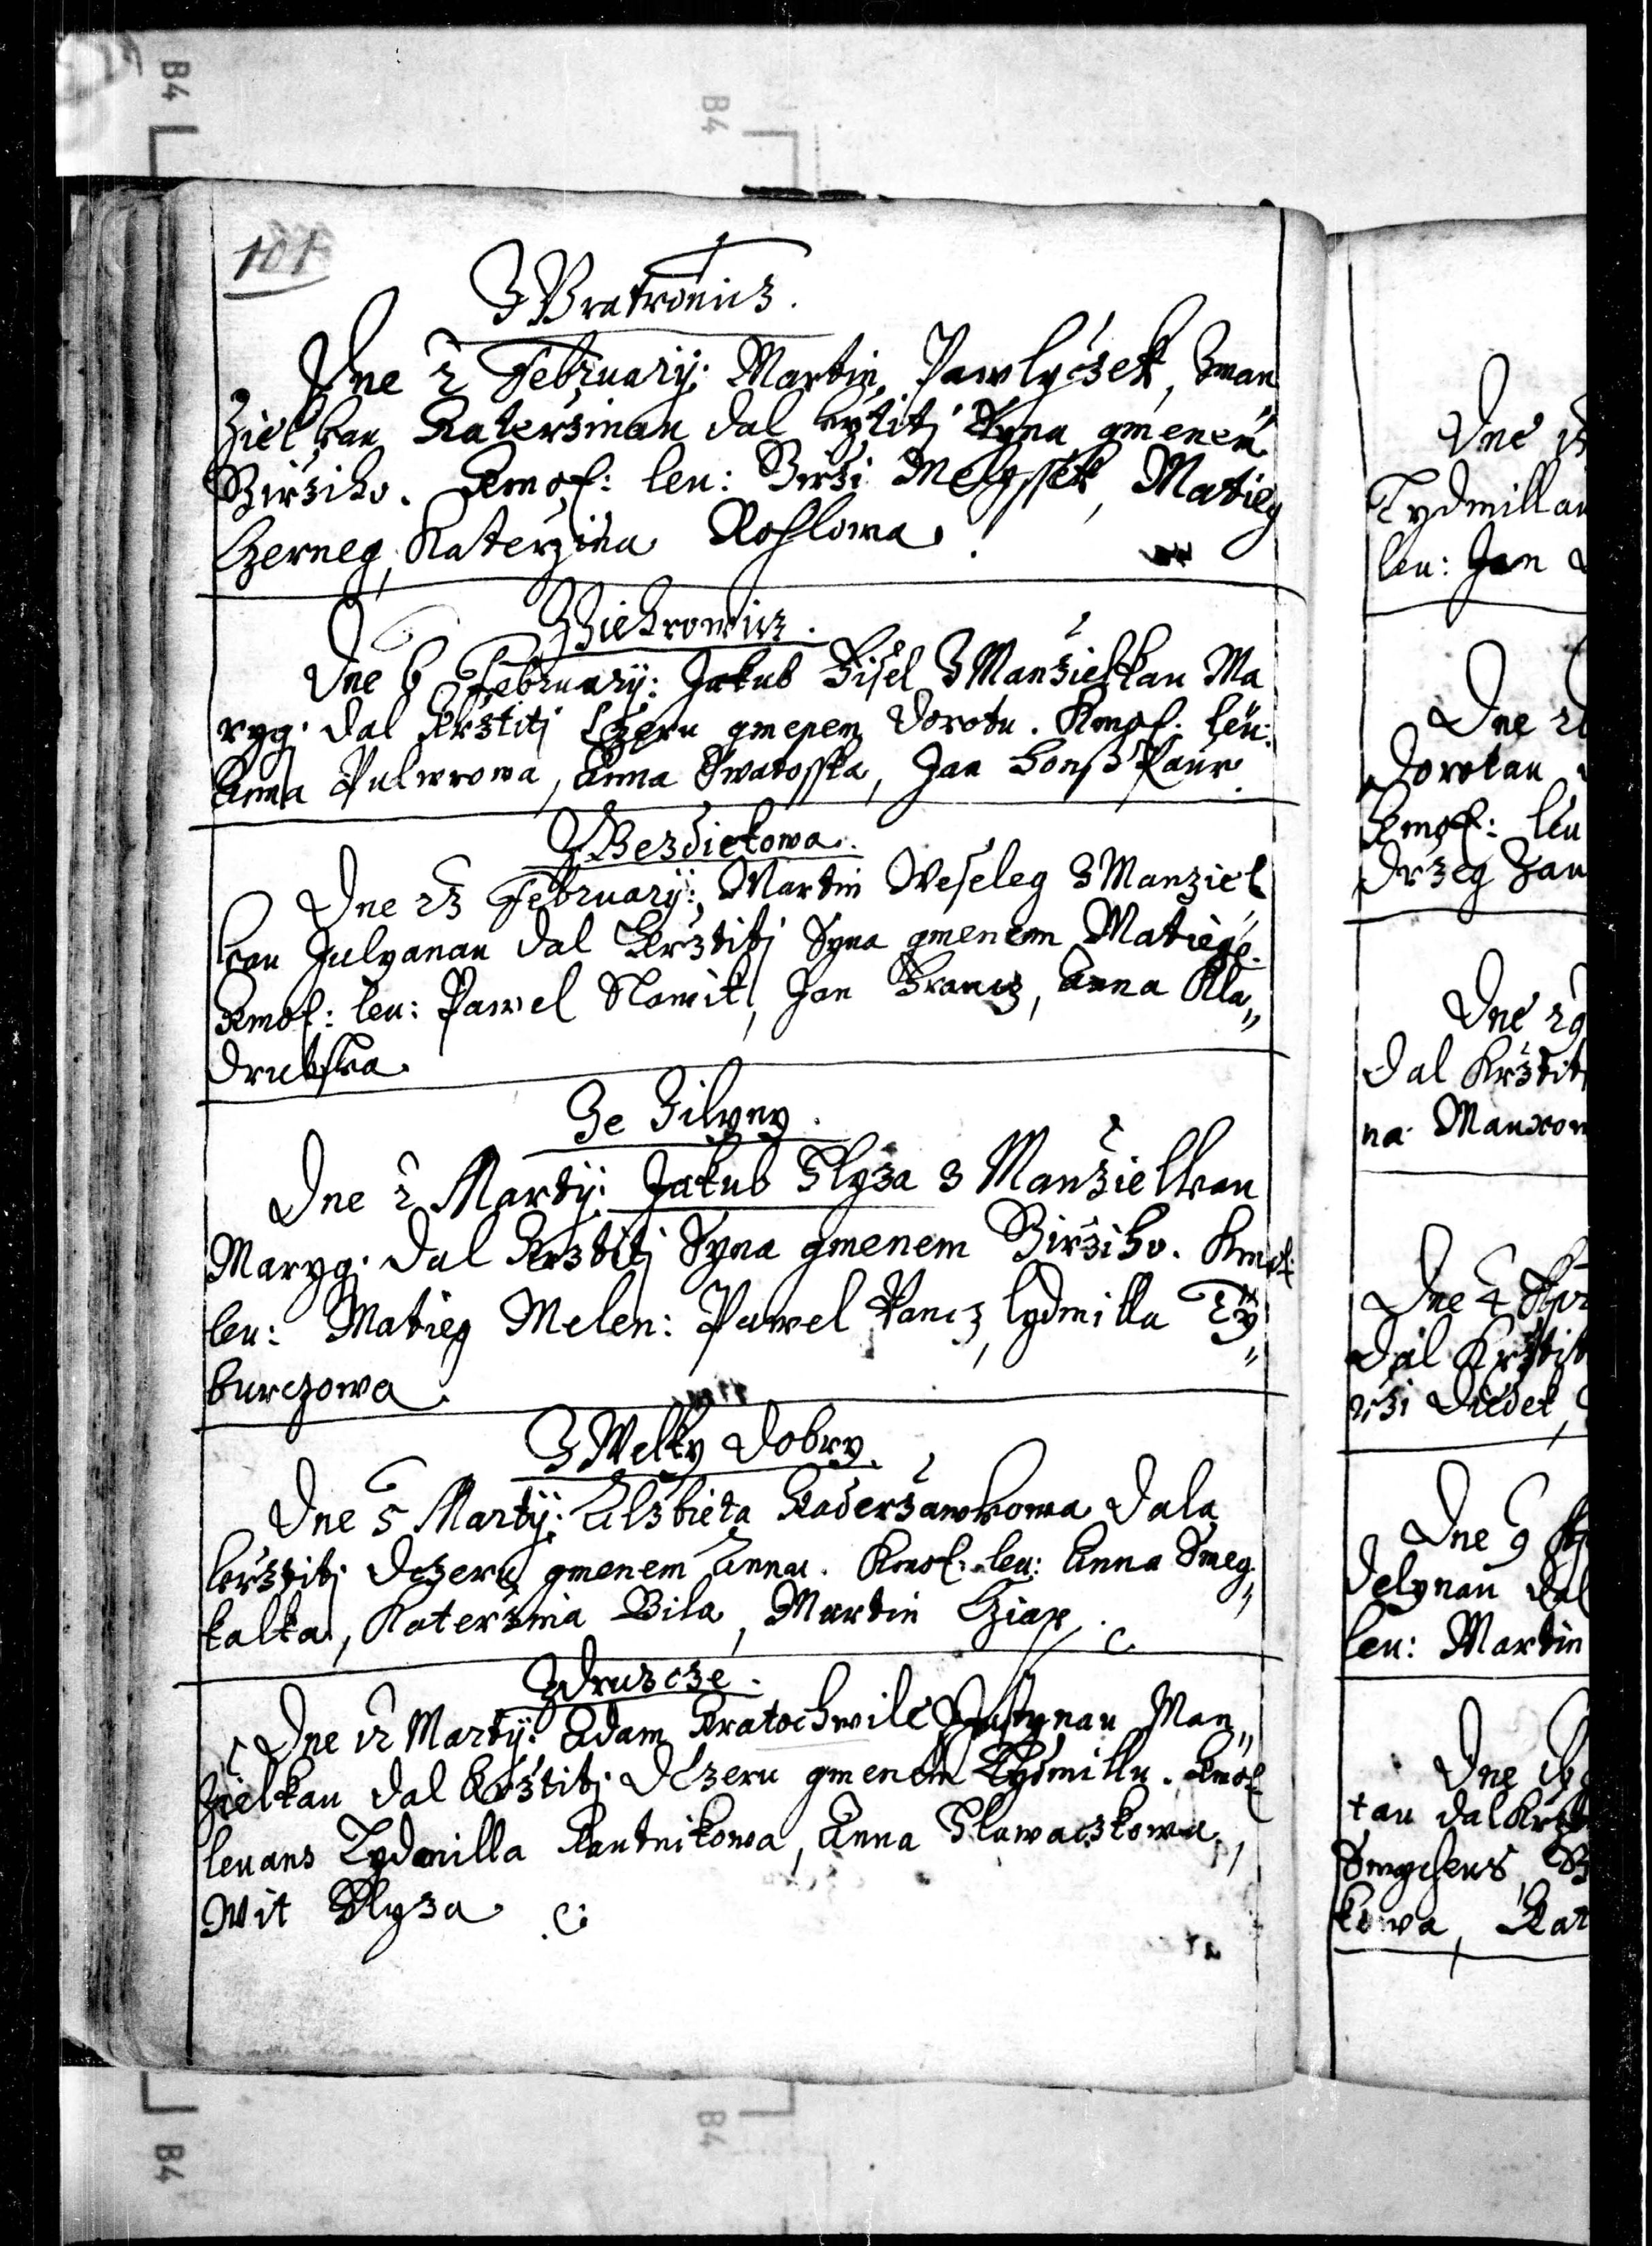 101
Z Bratronicz.
Dne 2 February: Martin Pawlyczek, Zman
Ziel kau Katerzinau dal krztitj Syna gmenem
Birziho. Kmof: leu: Birzi Melyssek, Matieg
Czerneg, Katerzina Rossowa.
Z Biekrowicz.
Dne 6 February: Jakub Zisel Z Manzielkau Ma
ryg. dal Krztitj Dczeru gmenem Dorotu. Kmof. leu:
Anna Pulwrowa, Anna Swatosska, Jan
Z Bezdiekowa.
Dne 23 February: Martin Weseleg Z Manziel
kau Julyanau dal Krztitj Syna gmenem Matiege.
Kmof: leu: Pawel Slawik, Jan Krancz, Anna Kla„
drubska.
Ze Zilyny.
Dne 2 Martij: Jakub Slyza z Manzielkau
Maryg. dal Krztitj Syna gmenem Birziho. Kmof:
leu: Matieg Melen: Pawel Vancz, lydmilla Ty„
burczowa.
Z Welky Dobry.
Dne 5 Martij: Alzbieta Kaderzawkowa dala
krztitj dczeru gmenem Annu. Kmof. leu: Anna Smeg„
kalka, Katerzina Bila, Martin Cziap.
Z druzcze.
Dne 12 Martij: Adam Kratochwile Justynau Man„
zielkau dal krztitj Dczeru gmenem Lydmillu. Kmof
leuans Lydmilla Kautnikowa, Anna Slawaczkowa,
Wit Slyza
Dne
Lydmillau
leu: Jan
Dne
Dorotau
Kmof: leu
drzeg Jan
Dne 29
dal Krztit
na
Dne 4
dal Krztit
rzi Diedek,
Dne 9
delynau dal
leu: Martin
Dne
tau dal krzt

kowa, Kat
B4
B4
B4
B4